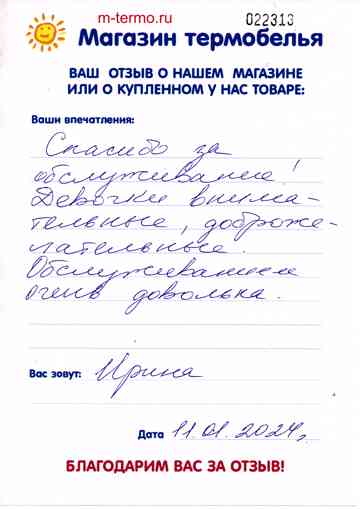 m-termo.ru
022313
Магазин термобелья
ВАШ ОТЗЫВ О НАШЕМ МАГАЗИНЕ
ИЛИ О КУПЛЕННОМ У НАС ТОВАРЕ:
Ваши впечатления:
Спасибо за
обслуживание!
Девочки внима-
тельные, доброже-
лательные.
Обслуживанием
очень довольна.
Вас зовут: Ирина
Дата 11.01.2024г.
БЛАГОДАРИМ ВАС ЗА ОТЗЫВ!